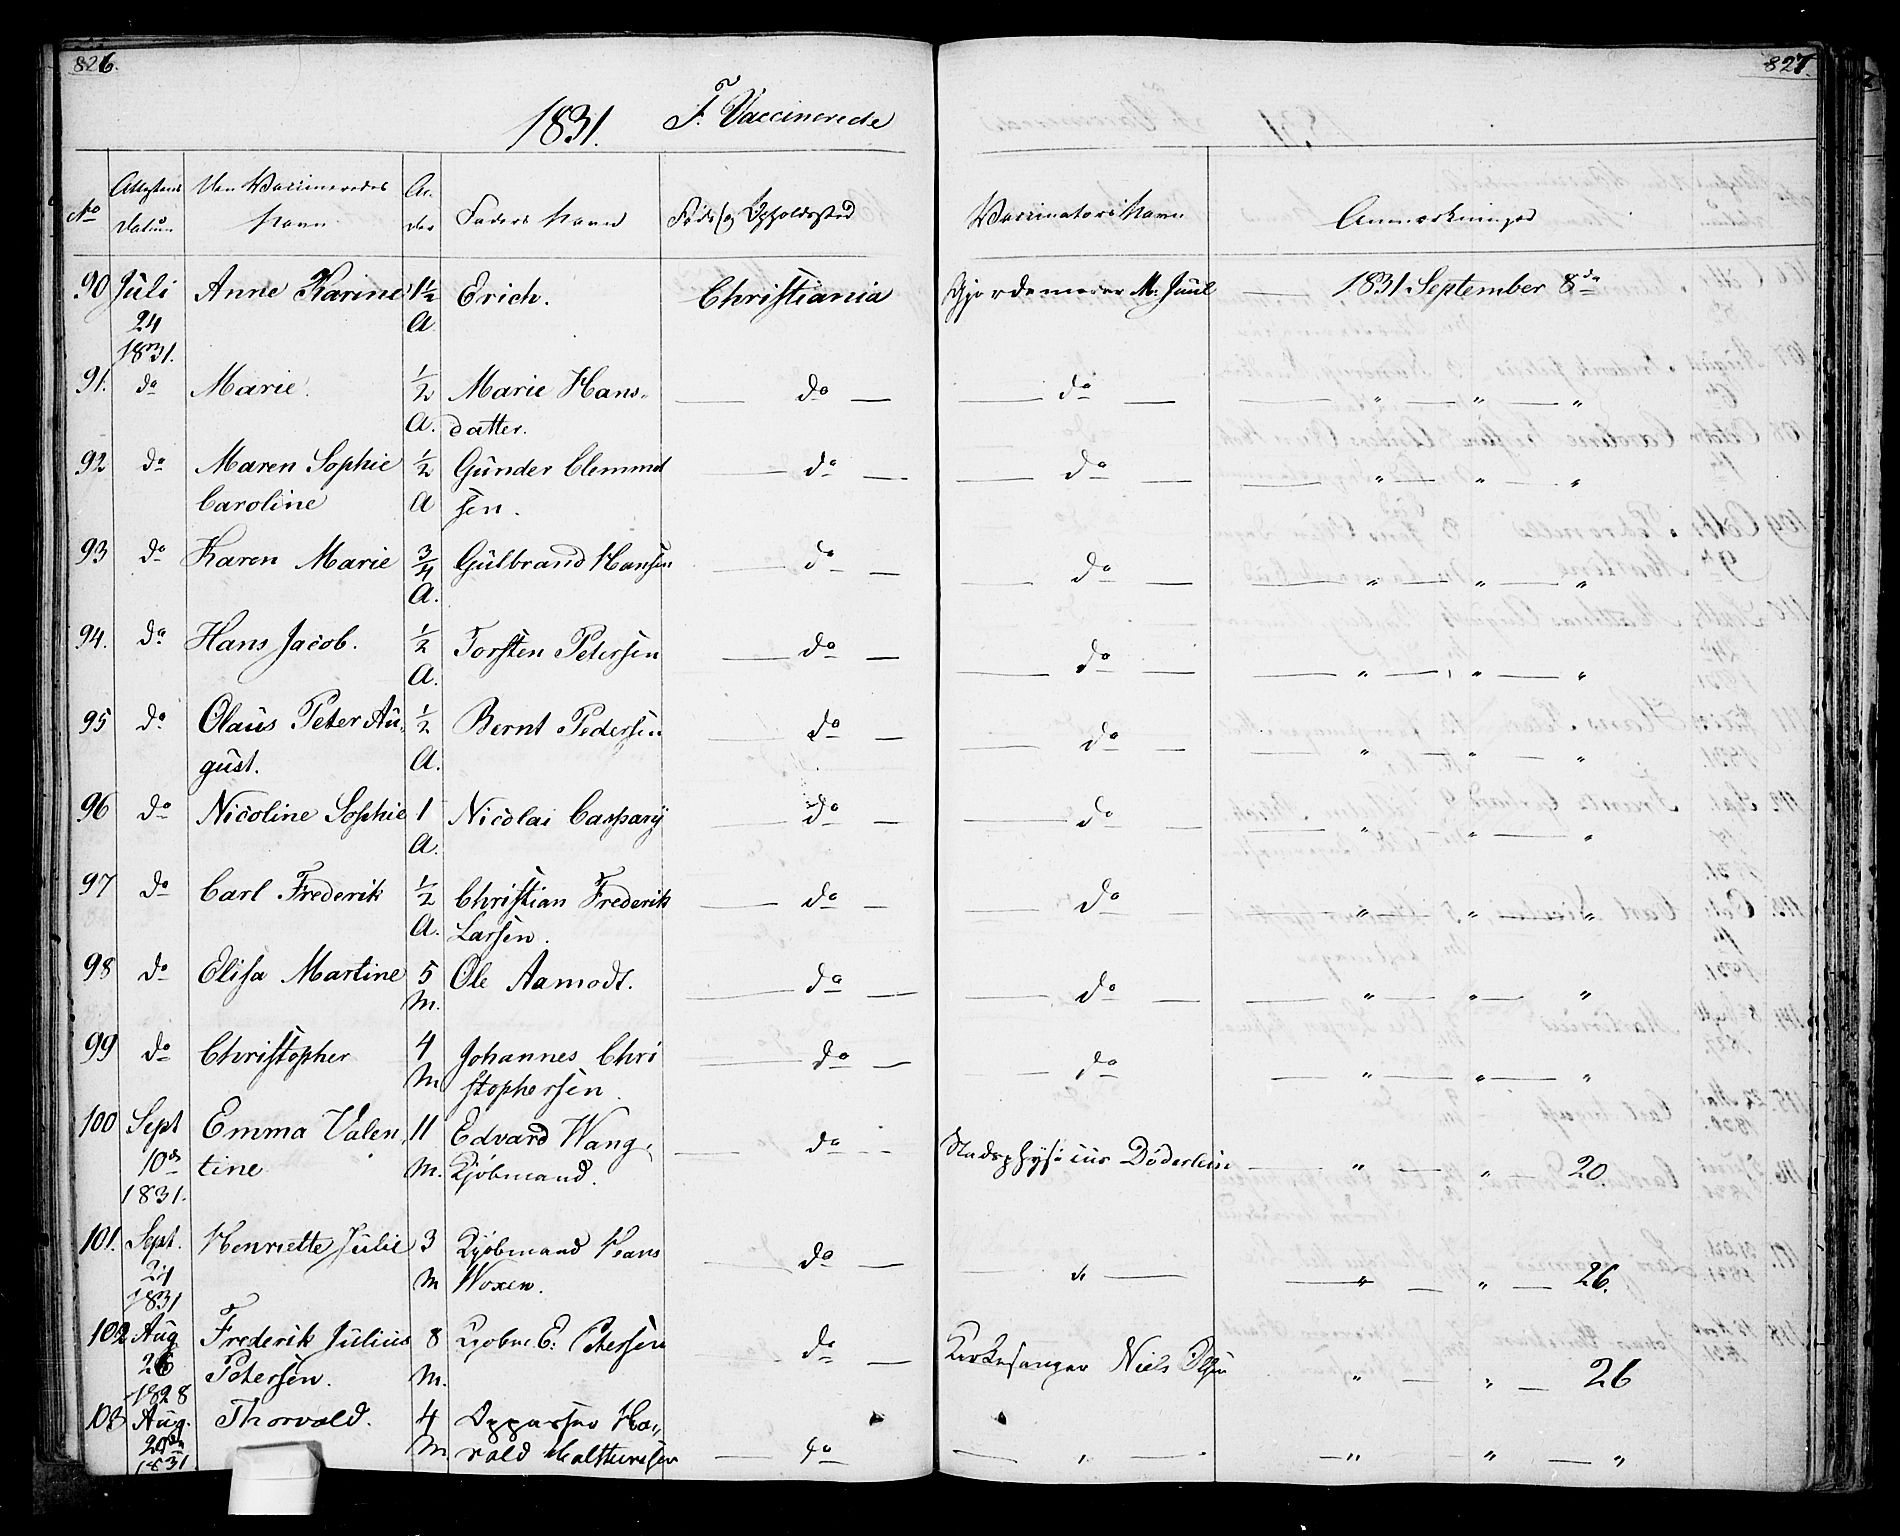 826.
827.
1831. F. Vaccinerede
No Attestens Datum Den Vaccineredes Navn Al- der Faders Navn Føde og Opholdssted Vaccinators Navn Anmærkninger
90 Juli Anne Karine 1½ Erich. Christiania Gjordemoder M. Juul — 1831 September 8de
24 A.
1831.
91. do Marie. ½ Marie Hans- — do — — do — " — " — "
A. datter.
92 do Maren Sophie ½ Gunder Clemmet — do — — do — " — " — "
Caroline A sen.
93 do Karen Marie ¾ Gulbrand Hansen — do — — do — " — " — "
A.
94. do Hans Jacob. ½ Torsten Petersen — do — — do — " — " — "
A.
95 do Olaus Peter Au- ½ Bernt Pedersen — do — — do — " — " — "
gust. A.
96 do Nicoline Sophie 1 Nicolai Caspary — do — — do — " — " — "
A.
97 do Carl Frederik ½ Christian Frederik — do — — do — " — " — "
A. Larsen.
98 do Elisa Martine 5 Ole Aamodt. — do — — do — " — " — "
M.
99 do Christopher 4 Johannes Chri — do — — do — " — " — "
M stophersen.
100 Sept Emma Valen 11 Edvard Wang, — do — Stadsphysicus Døderlein — " — " — 20.
10de tine M. Kjøbmand.
1831.
101. Sept. Henriette Julie 3 Kjøbmand Hans — do — — " — — " — " — 26.
24 M Woxen.
1831
102 Aug Frederik Julius 8 Kjøbm. E. Petersen — do — Kirkesanger Niels Olsen " — " — 26
26 Petersen. M.
1828
103 Aug. Thorvald. 4 Oppasser Ha- — do — — " — — " " — "
M rald
1831.